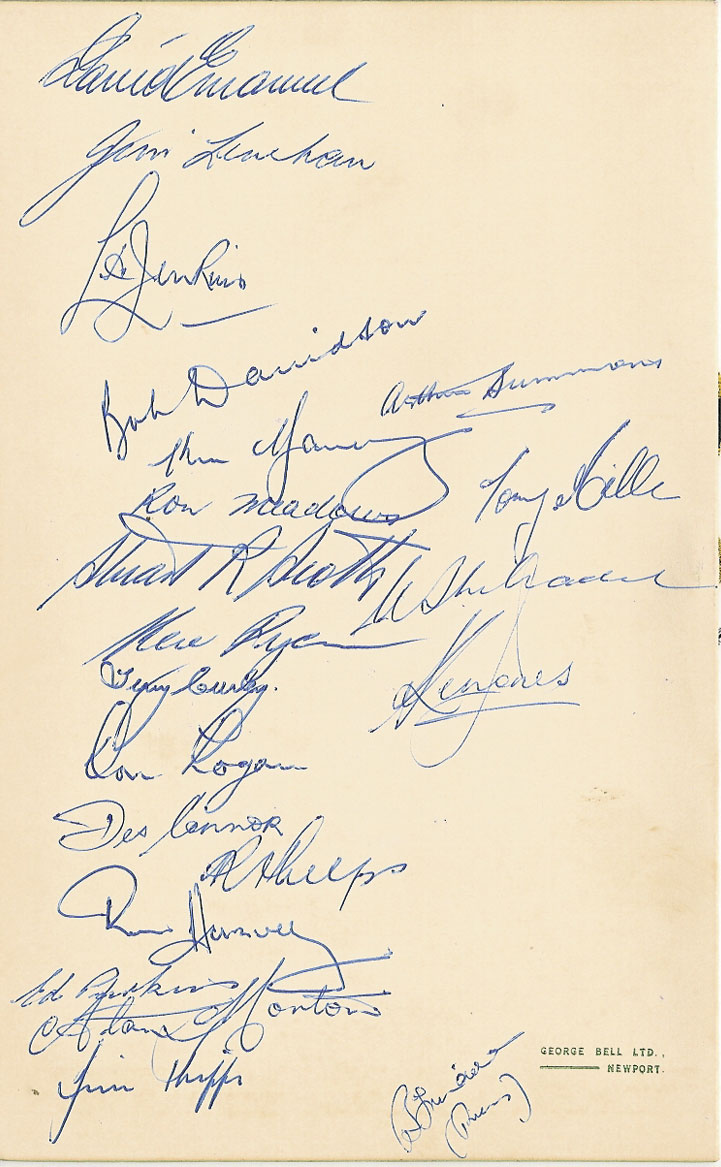 David Emanuel
Jim Lenehan
Jenkins
Bob Davidson
Arthur Summons
Ron Meadows
Tony Miller
Stuart R Scott
Ken Ryan
Terry Curley.
Ken Jones
Don Logan
Des Connor
R Phelps
Harvey
Ed Purkiss
Alan Morton
Jim Phipps
GEORGE BELL LTD.,
NEWPORT.